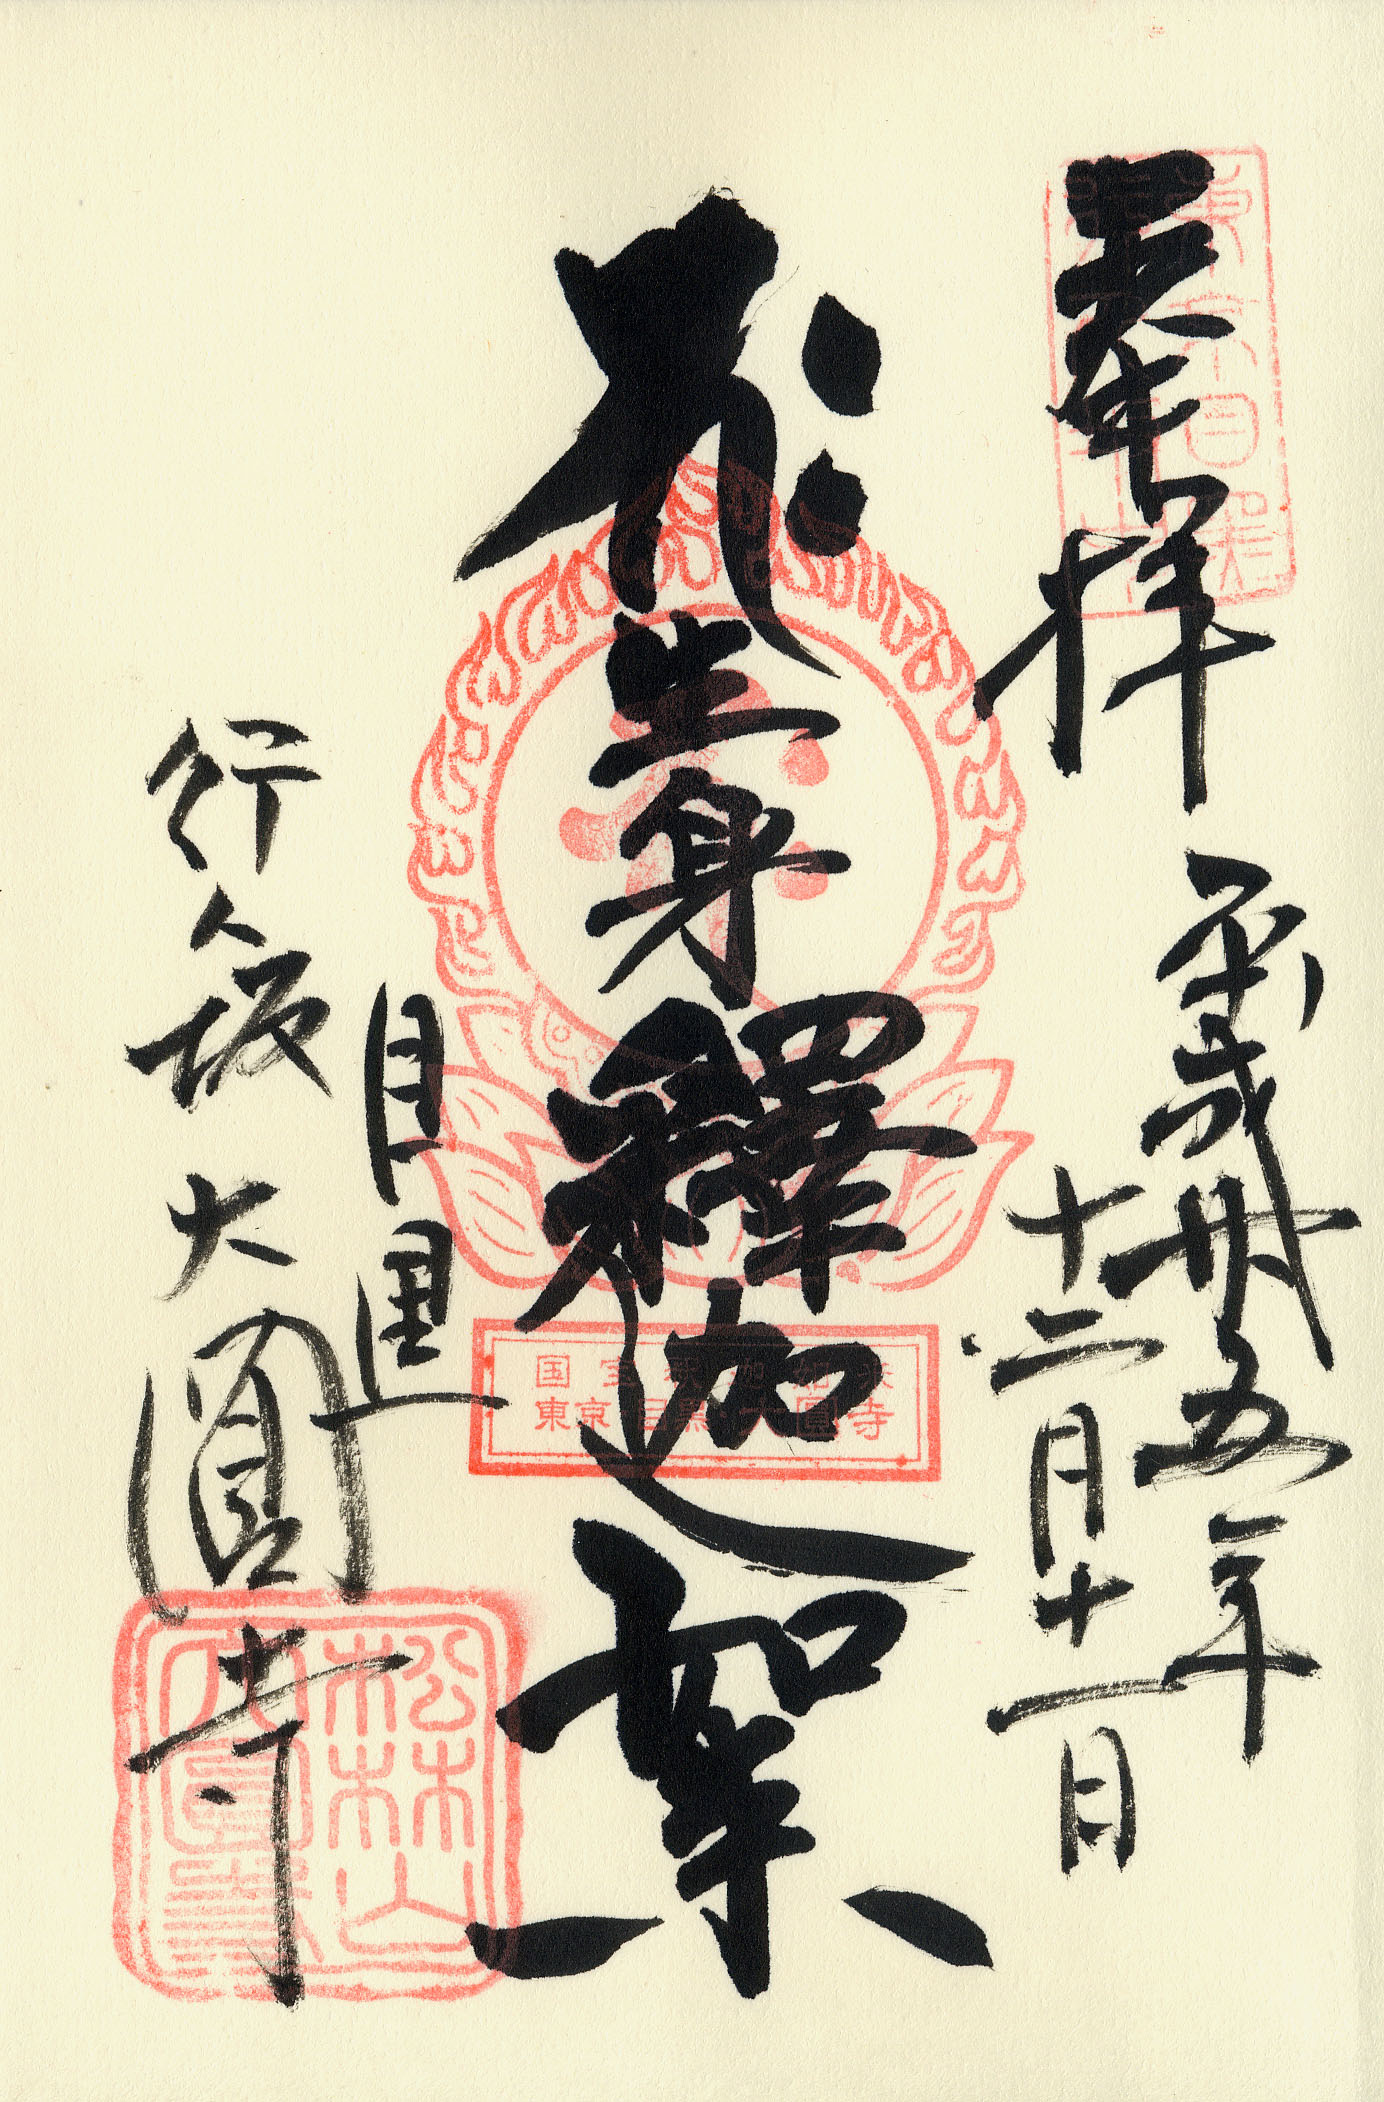 奉拝
平成廿五年
十二月十一日
生身釋迦如来
目黒
行人坂
大圓寺
東京目黒
国宝釈迦如来
東京 目黒 大圓寺
松林山
大圓寺